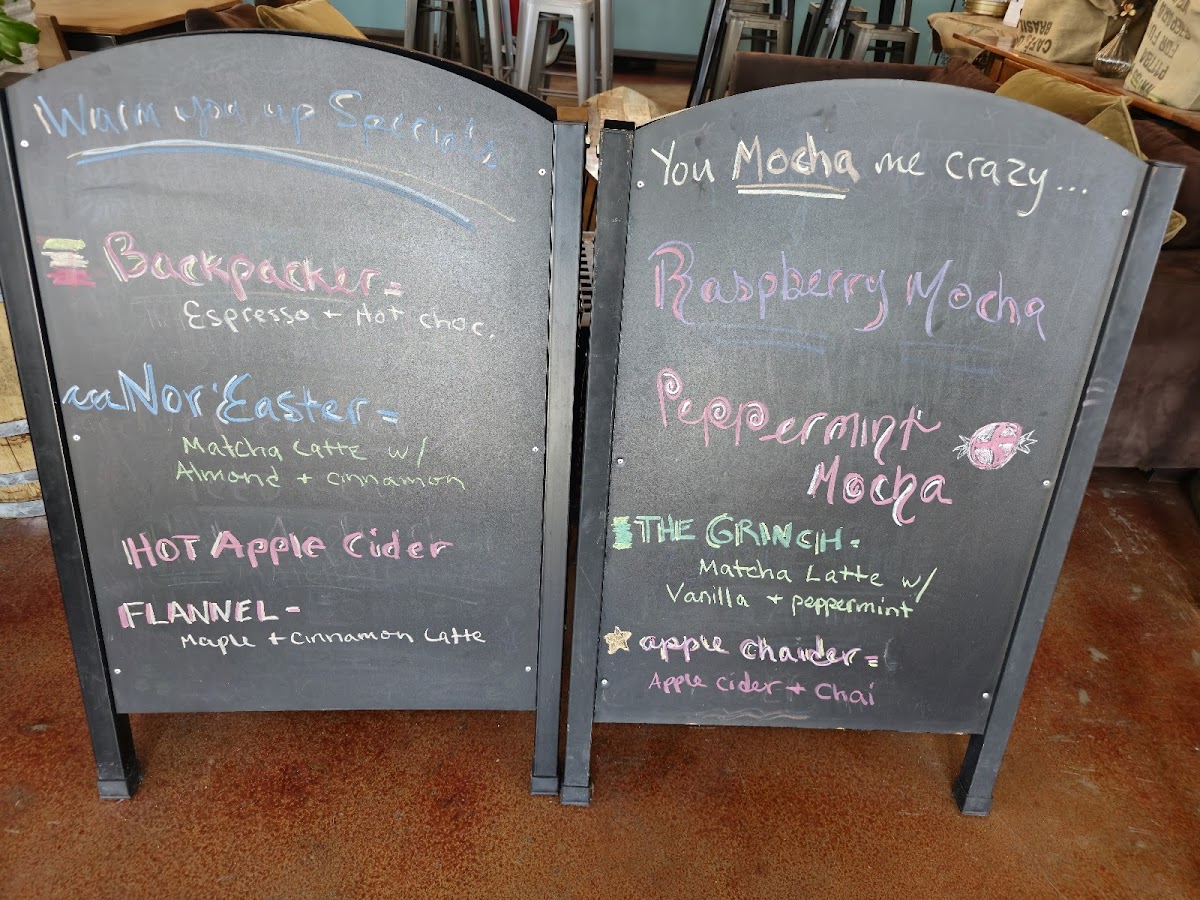 Warm you up Specials
Backpacker =
Espresso + Hot choc.
Nor'Easter =
Matcha Latte w/
Almond + cinnamon
HOT Apple Cider
FLANNEL -
Maple + Cinnamon Latte
You Mocha me crazy...
Raspberry Mocha
Peppermint
Mocha
THE GRINCH -
Matcha Latte w/
Vanilla + peppermint
apple chaider =
Apple cider + Chai
CAFÉ
BRASIL